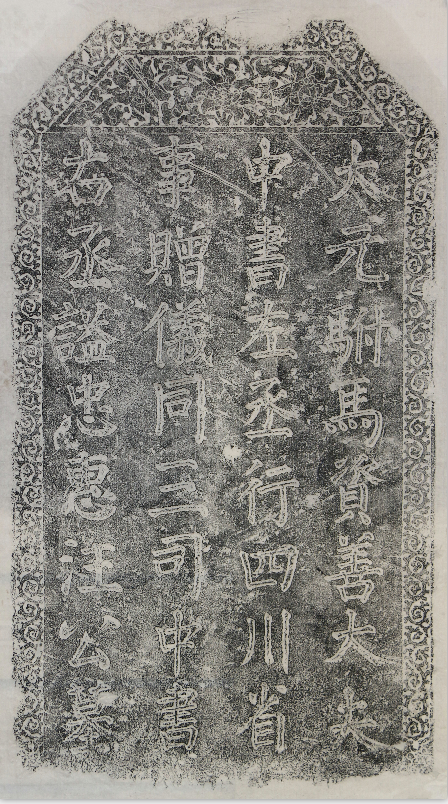 大元駙馬資善大夫
中書左丞行四川省
事贈儀同三司中書
右丞謚忠惠汪公墓